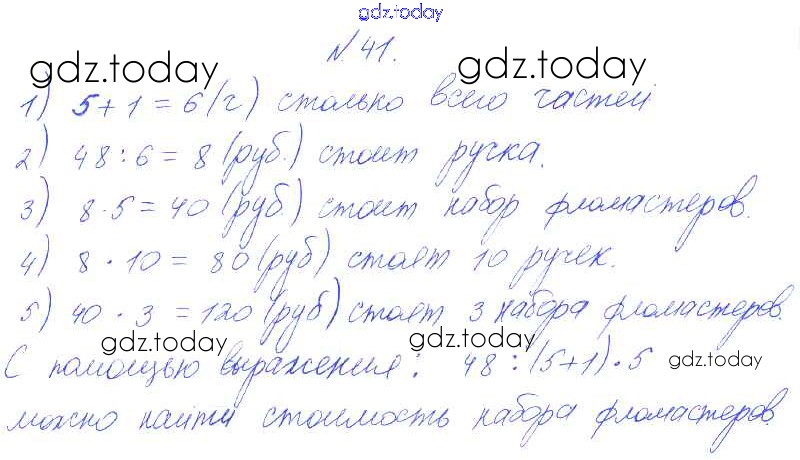 gdz.today
№ 41.
gdz.today gdz.today
1) 5+1 = 6 (г) столько всего частей
2) 48 : 6 = 8 (руб.) стоит ручка.
3) 8 · 5 = 40 (руб.) стоит набор фломастеров.
4) 8 · 10 = 80 (руб) стоят 10 ручек.
5) 40 · 3 = 120 (руб) стоят 3 набора фломастеров.
gdz.today gdz.today gdz.today
С помощью выражения: 48 : (5+1) · 5
можно найти стоимость набора фломастеров